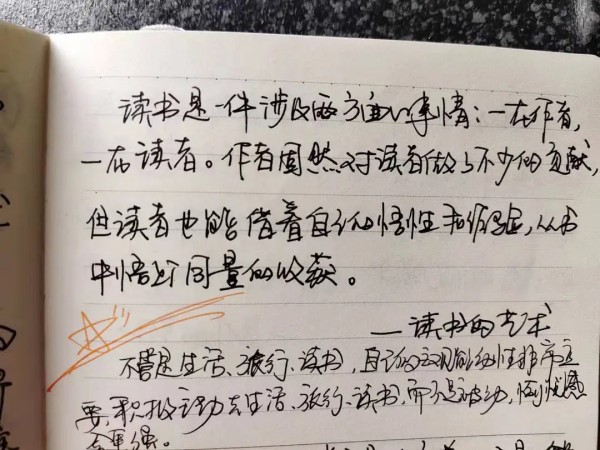 读书是一件涉及两方面的事情：一在作者，
一在读者。作者固然对读者做了不少的贡献，
但读者也能借着自己的悟性和经验，从书
中悟出同量的收获。
——读书的艺术
不管是生活、旅行、读书，自己的主观能动性非常重
要，积极主动去生活、旅行、读书，而不是被动，
会更强。